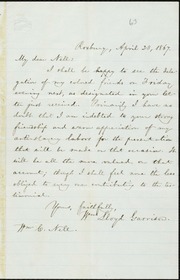 Roxbury, April 20, 1867.
My dear Nell:
I shall be happy to see the dele-
gation of my valued friends on Tuesday
evening next, as designated in your let-
ter just received. Primarily, I have no
doubt that I am indebted to your strong
friendship and warm appreciation of my
anti-slavery labors for the presentation
that will be made on that occasion. It
will be all the more valued on that
account; though I shall feel none the less
obliged to every one contributing to the tes-
timonial.
Yours, faithfully,
Wm. Lloyd Garrison.
Wm. C. Nell.